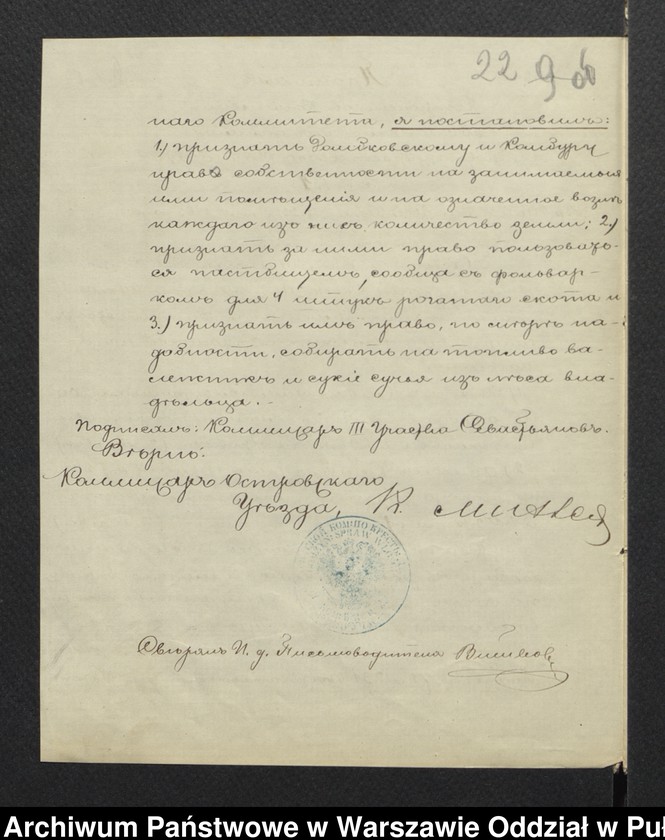 22 9
наго Коммитета, я постановилъ:
1.) признать Домбковскому и Комбуру
право собственности на занимаемыя
ими помѣщенія и на означенное возлѣ
каждаго изъ нихъ количество земли; 2.)
признать за ними право пользовать-
ся пастбищемъ, сообща съ фольвар-
комъ для 4 штукъ рогатаго скота и
3.) признать имъ право, по мѣрѣ на-
добности, собирать на топливо ва-
лежникъ и сухіе сучья изъ лѣса вла-
дѣльца.-
Подписалъ: Коммисаръ III Участка Севастьяновъ.
Вѣрно:
Коммисаръ Островскаго
Уѣзда,
Свѣрялъ И. д. Письмоводителя
Archiwum Państwowe w Warszawie Oddział w Pu